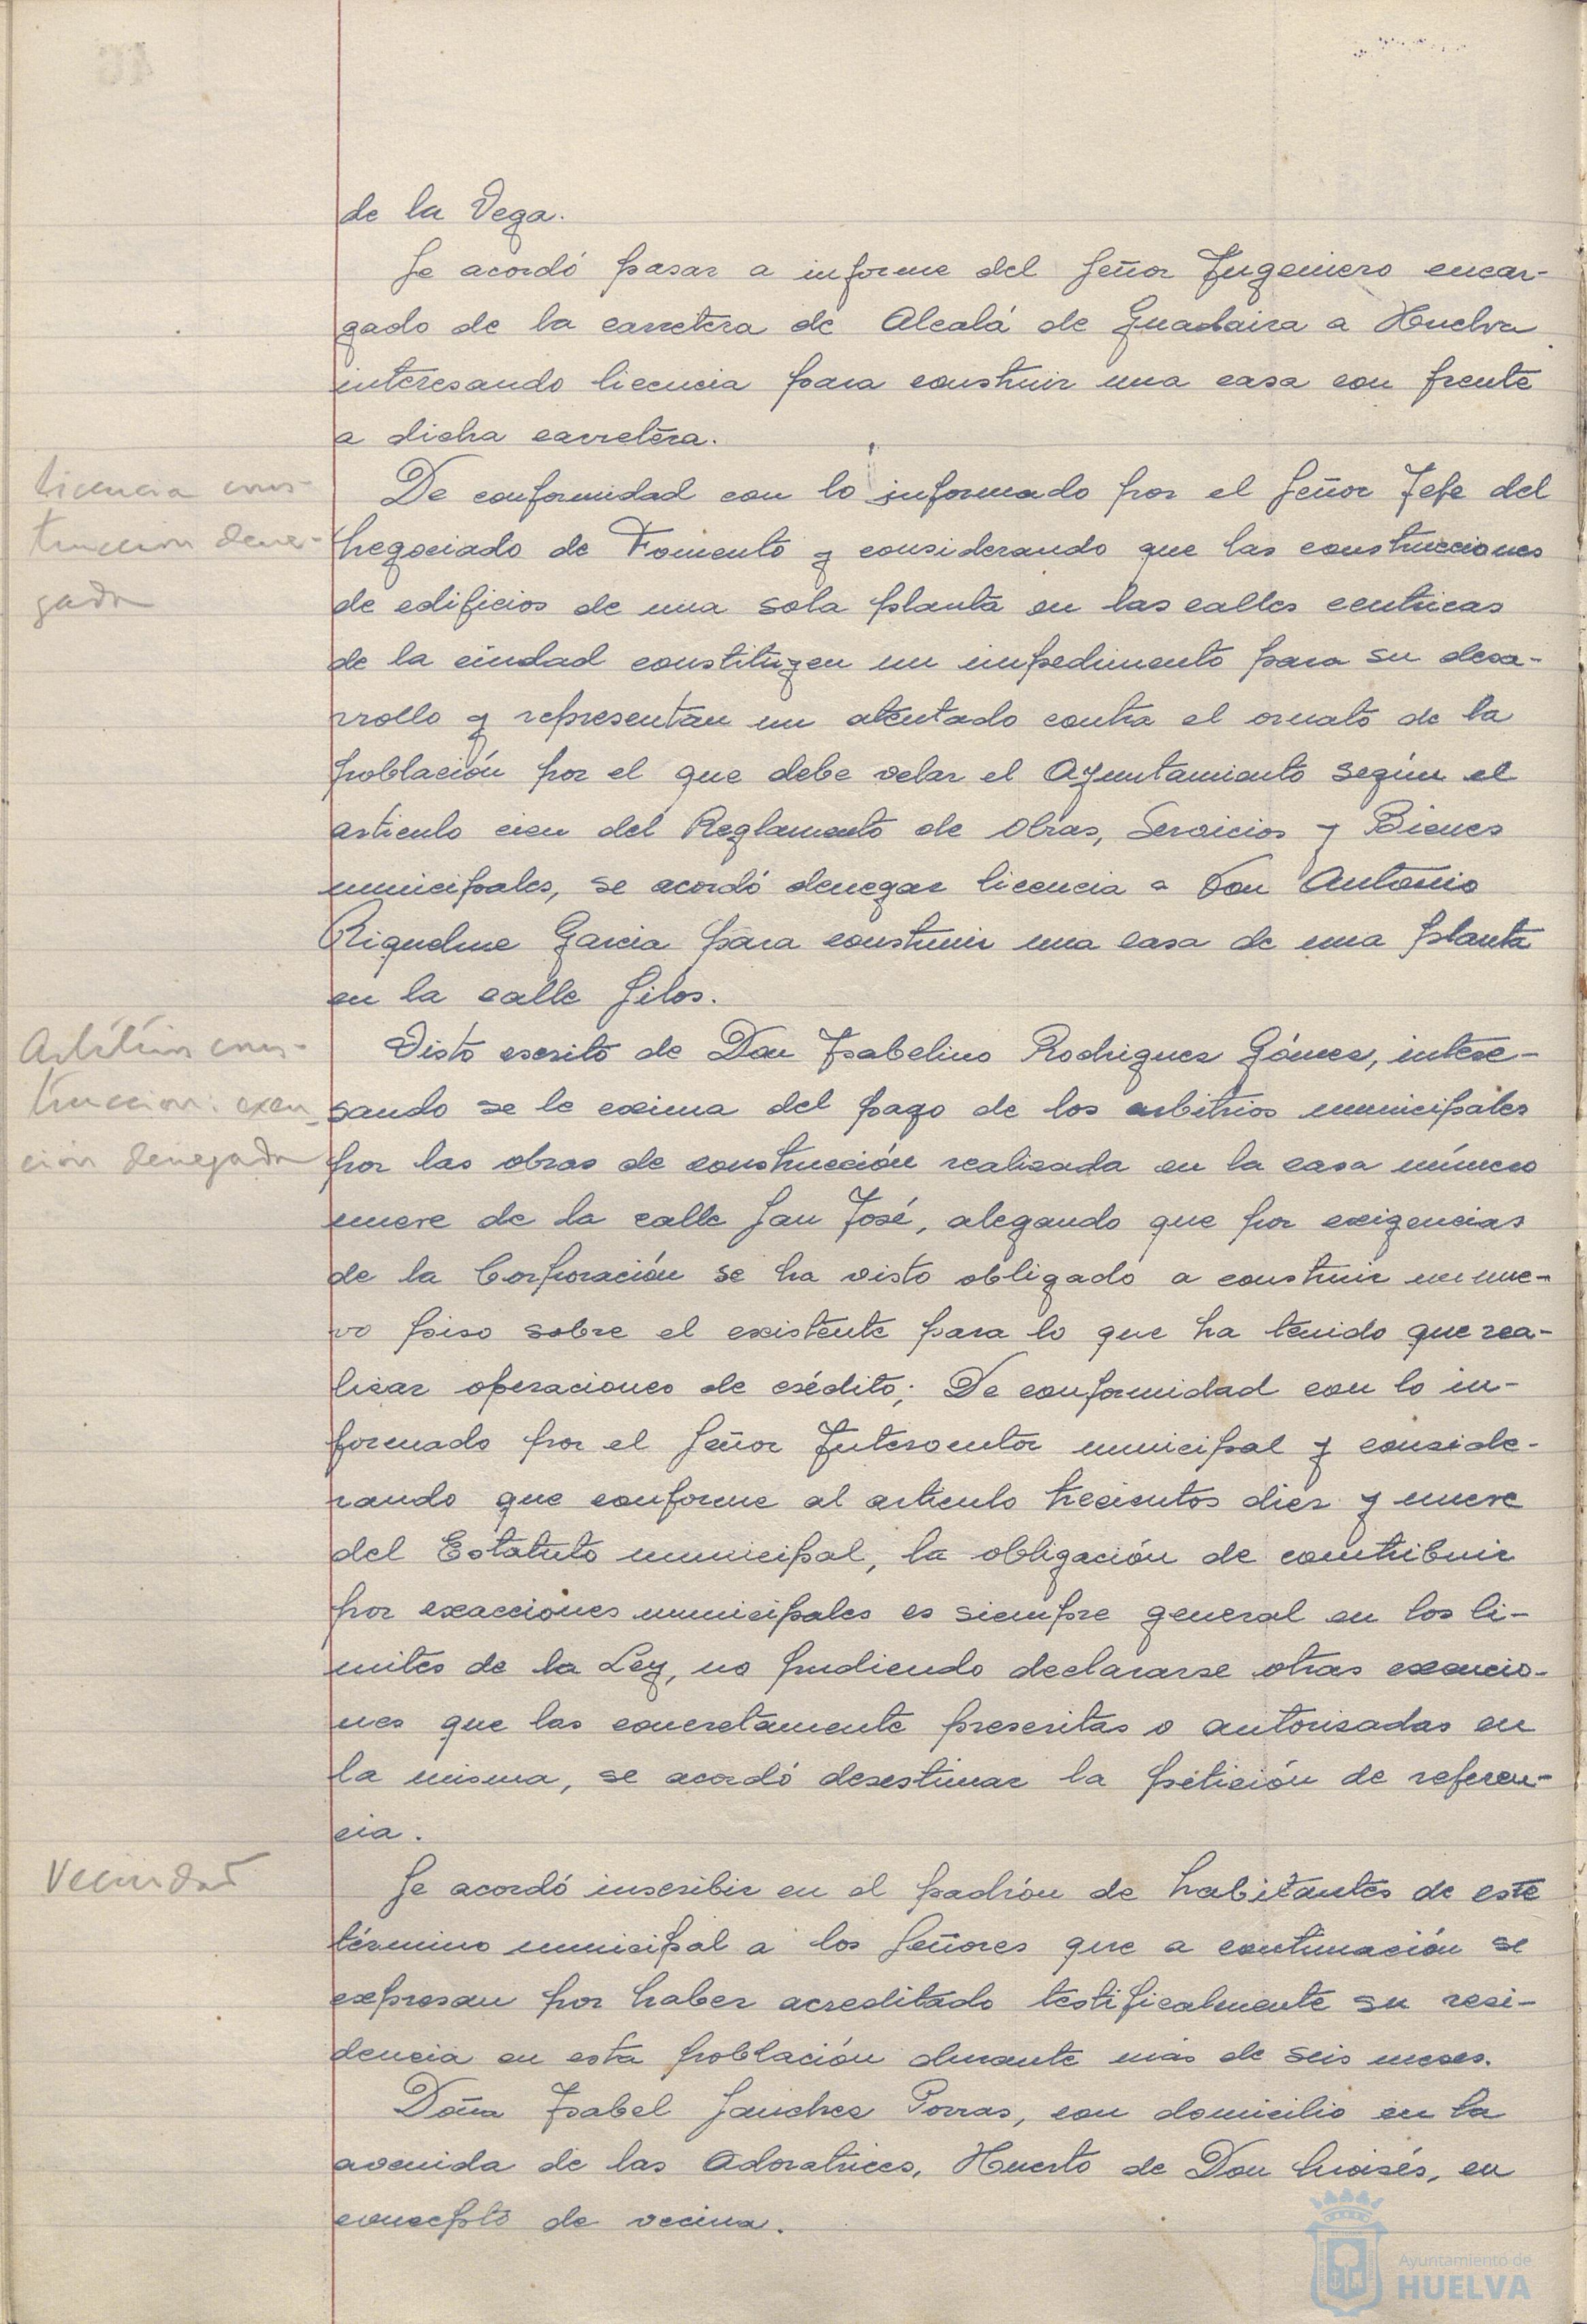 de la Vega.
Se acordó pasar a informe del Señor Ingeniero encar-
gado de la carretera de Alcalá de Guadaira a Huelva
interesando licencia para construir una casa con frente
a dicha carretera.
Licencia cons-
truccion dene-
gada
De conformidad con lo informado por el Señor Jefe del
Negociado de Fomento y considerando que las construcciones
de edificios de una sola planta en las calles centricas
de la ciudad constituyen un impedimento para su desa-
rrollo y representan un atentado contra el ornato de la
población por el que debe velar el Ayuntamiento según el
articulo cien del Reglamento de Obras, Servicios y Bienes
municipales, se acordó denegar licencia a Don Antonio
Riquelme Garcia para construir una casa de una planta
en la calle Silos.
Arbitrios cons-
truccion. exen-
cion denegada
Visto escrito de Don Isabelino Rodriguez Gómez, intere-
sando se le exima del pago de los arbitrios municipales
por las obras de construcción realizada en la casa número
nueve de la calle San José, alegando que por exigencias
de la Corporación se ha visto obligado a construir un nue-
vo piso sobre el existente para lo que ha tenido que rea-
lizar operaciones de crédito; De conformidad con lo in-
formado por el Señor Interventor municipal y conside-
rando que conforme al articulo trecientos diez y nueve
del Estatuto municipal, la obligación de contribuir
por exacciones municipales es siempre general en los li-
mites de la Ley, no pudiendo declararse otras exencio-
nes que las concretamente prescritas o autorizadas en
la misma, se acordó desestimar la petición de referen-
cia.
Vecindad
Se acordó inscribir en el padrón de habitantes de este
término municipal a los Señores que a continuación se
expresan por haber acreditado testificalmente su resi-
dencia en esta población durante mas de seis meses.
Doña Isabel Sanchez Porras, con domicilio en la
avenida de las Adoratrices, Huerto de Don Moisés, en
concepto de vecina.
Ayuntamiento de
HUELVA